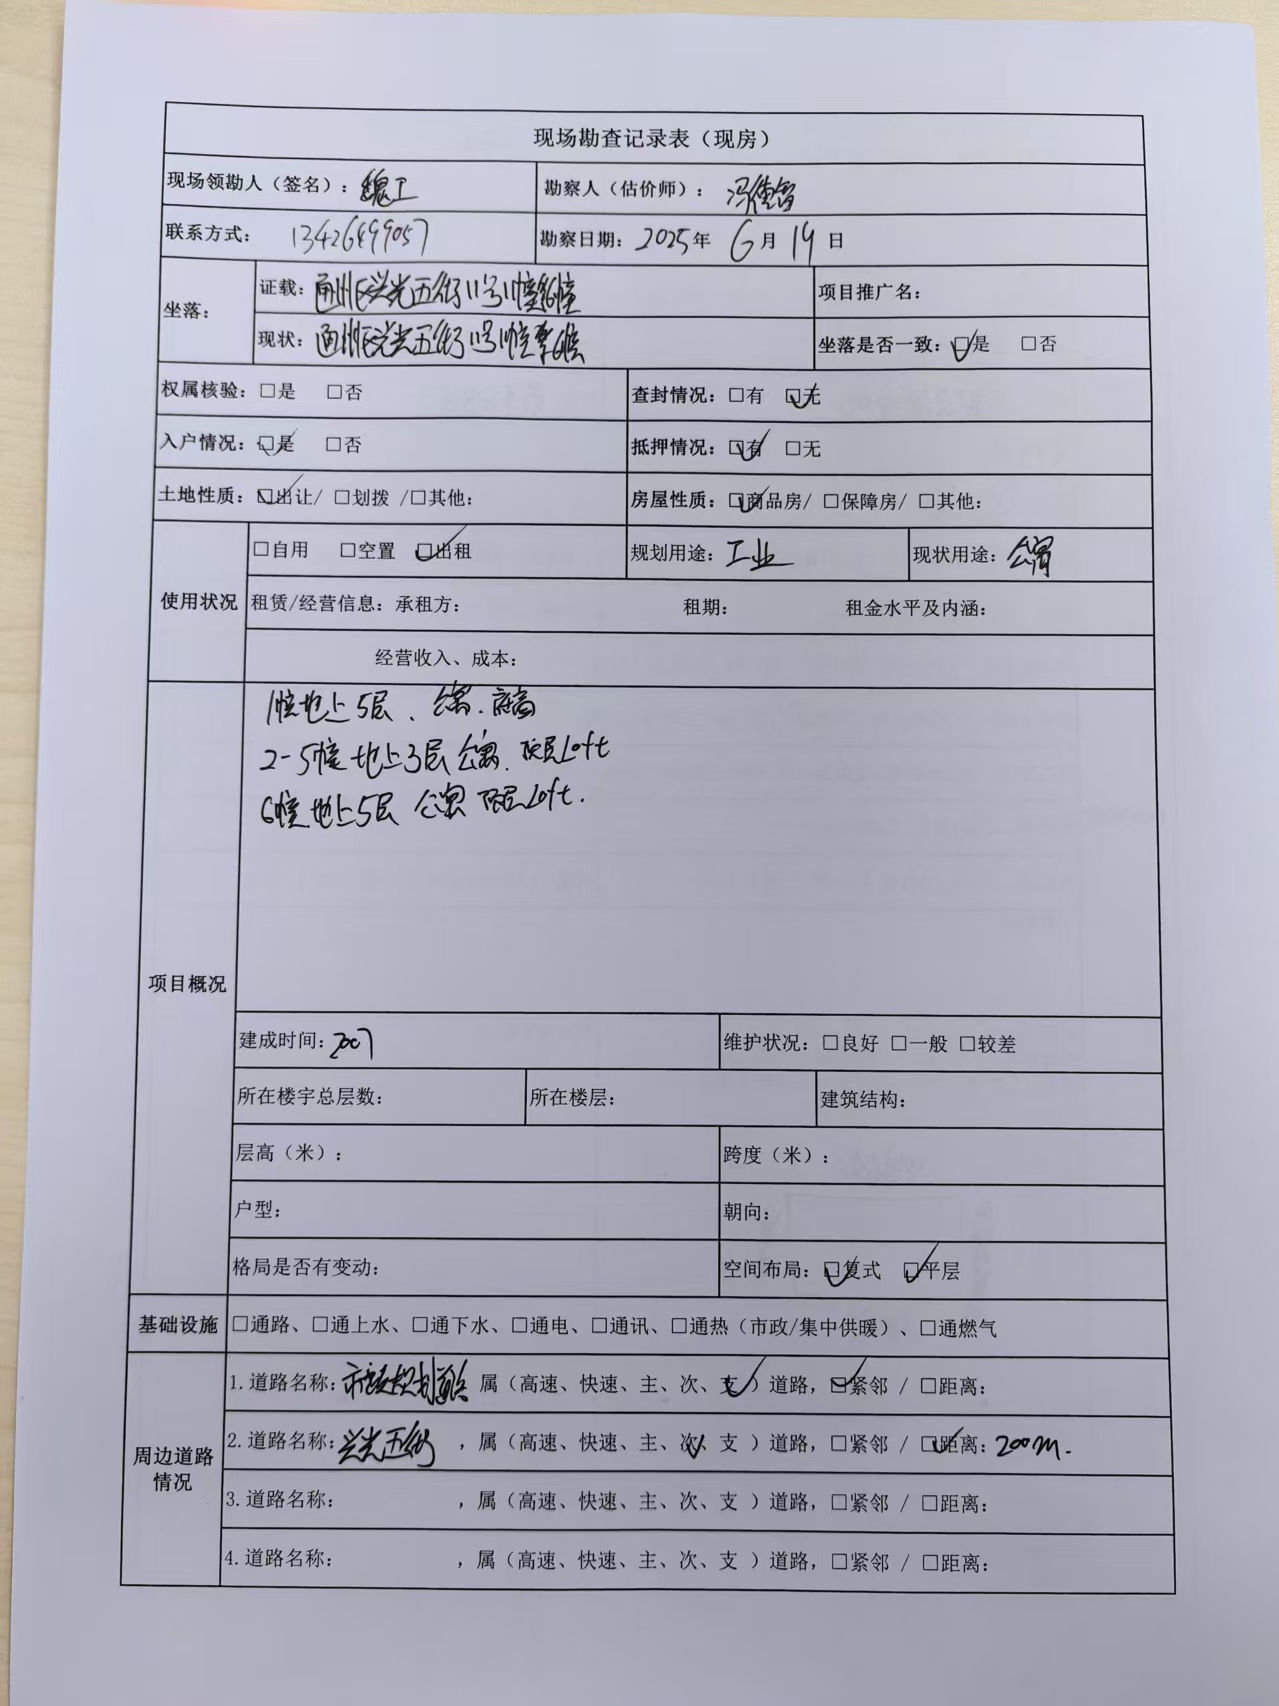 现场勘查记录表（现房）
现场领勘人（签名）：魏工 勘察人（估价师）：冯德智
联系方式：13426499057 勘察日期：2025年 6月 19日
坐落： 证载：通州区兴光五街11号1幢等6幢 项目推广名：
现状：通州区兴光五街11号1幢等6幢 坐落是否一致：☑是 □否
权属核验：□是 □否 查封情况：□有 ☑无
入户情况：☑是 □否 抵押情况：☑有 □无
土地性质：☑出让/ □划拨 /□其他： 房屋性质：☑商品房/ □保障房/ □其他：
使用状况 □自用 □空置 ☑出租 规划用途：工业 现状用途：公寓
租赁/经营信息：承租方： 租期： 租金水平及内涵：
经营收入、成本：
项目概况
1幢地上5层、公寓、
2-5幢 地上3层 公寓、顶层Loft
6幢 地上5层 公寓 顶层Loft.
建成时间：2007 维护状况：□良好 □一般 □较差
所在楼宇总层数： 所在楼层： 建筑结构：
层高（米）： 跨度（米）：
户型： 朝向：
格局是否有变动： 空间布局：☑复式 ☑平层
基础设施 □通路、□通上水、□通下水、□通电、□通讯、□通热（市政/集中供暖）、□通燃气
周边道路情况
1.道路名称：市政规划道路 属（高速、快速、主、次、支✓）道路，☑紧邻 / □距离：
2.道路名称：兴光五街 ，属（高速、快速、主、次✓、支 ）道路，□紧邻 / ☑距离：200m.
3.道路名称： ，属（高速、快速、主、次、支 ）道路，□紧邻 / □距离：
4.道路名称： ，属（高速、快速、主、次、支 ）道路，□紧邻 / □距离：